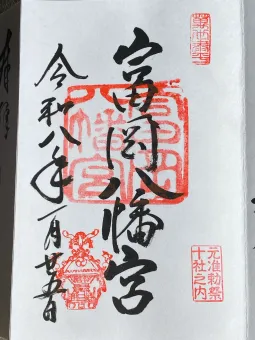 富岡八幡宮
元准勅祭
十社之内
富岡
八幡宮
令和八年一月廿五日